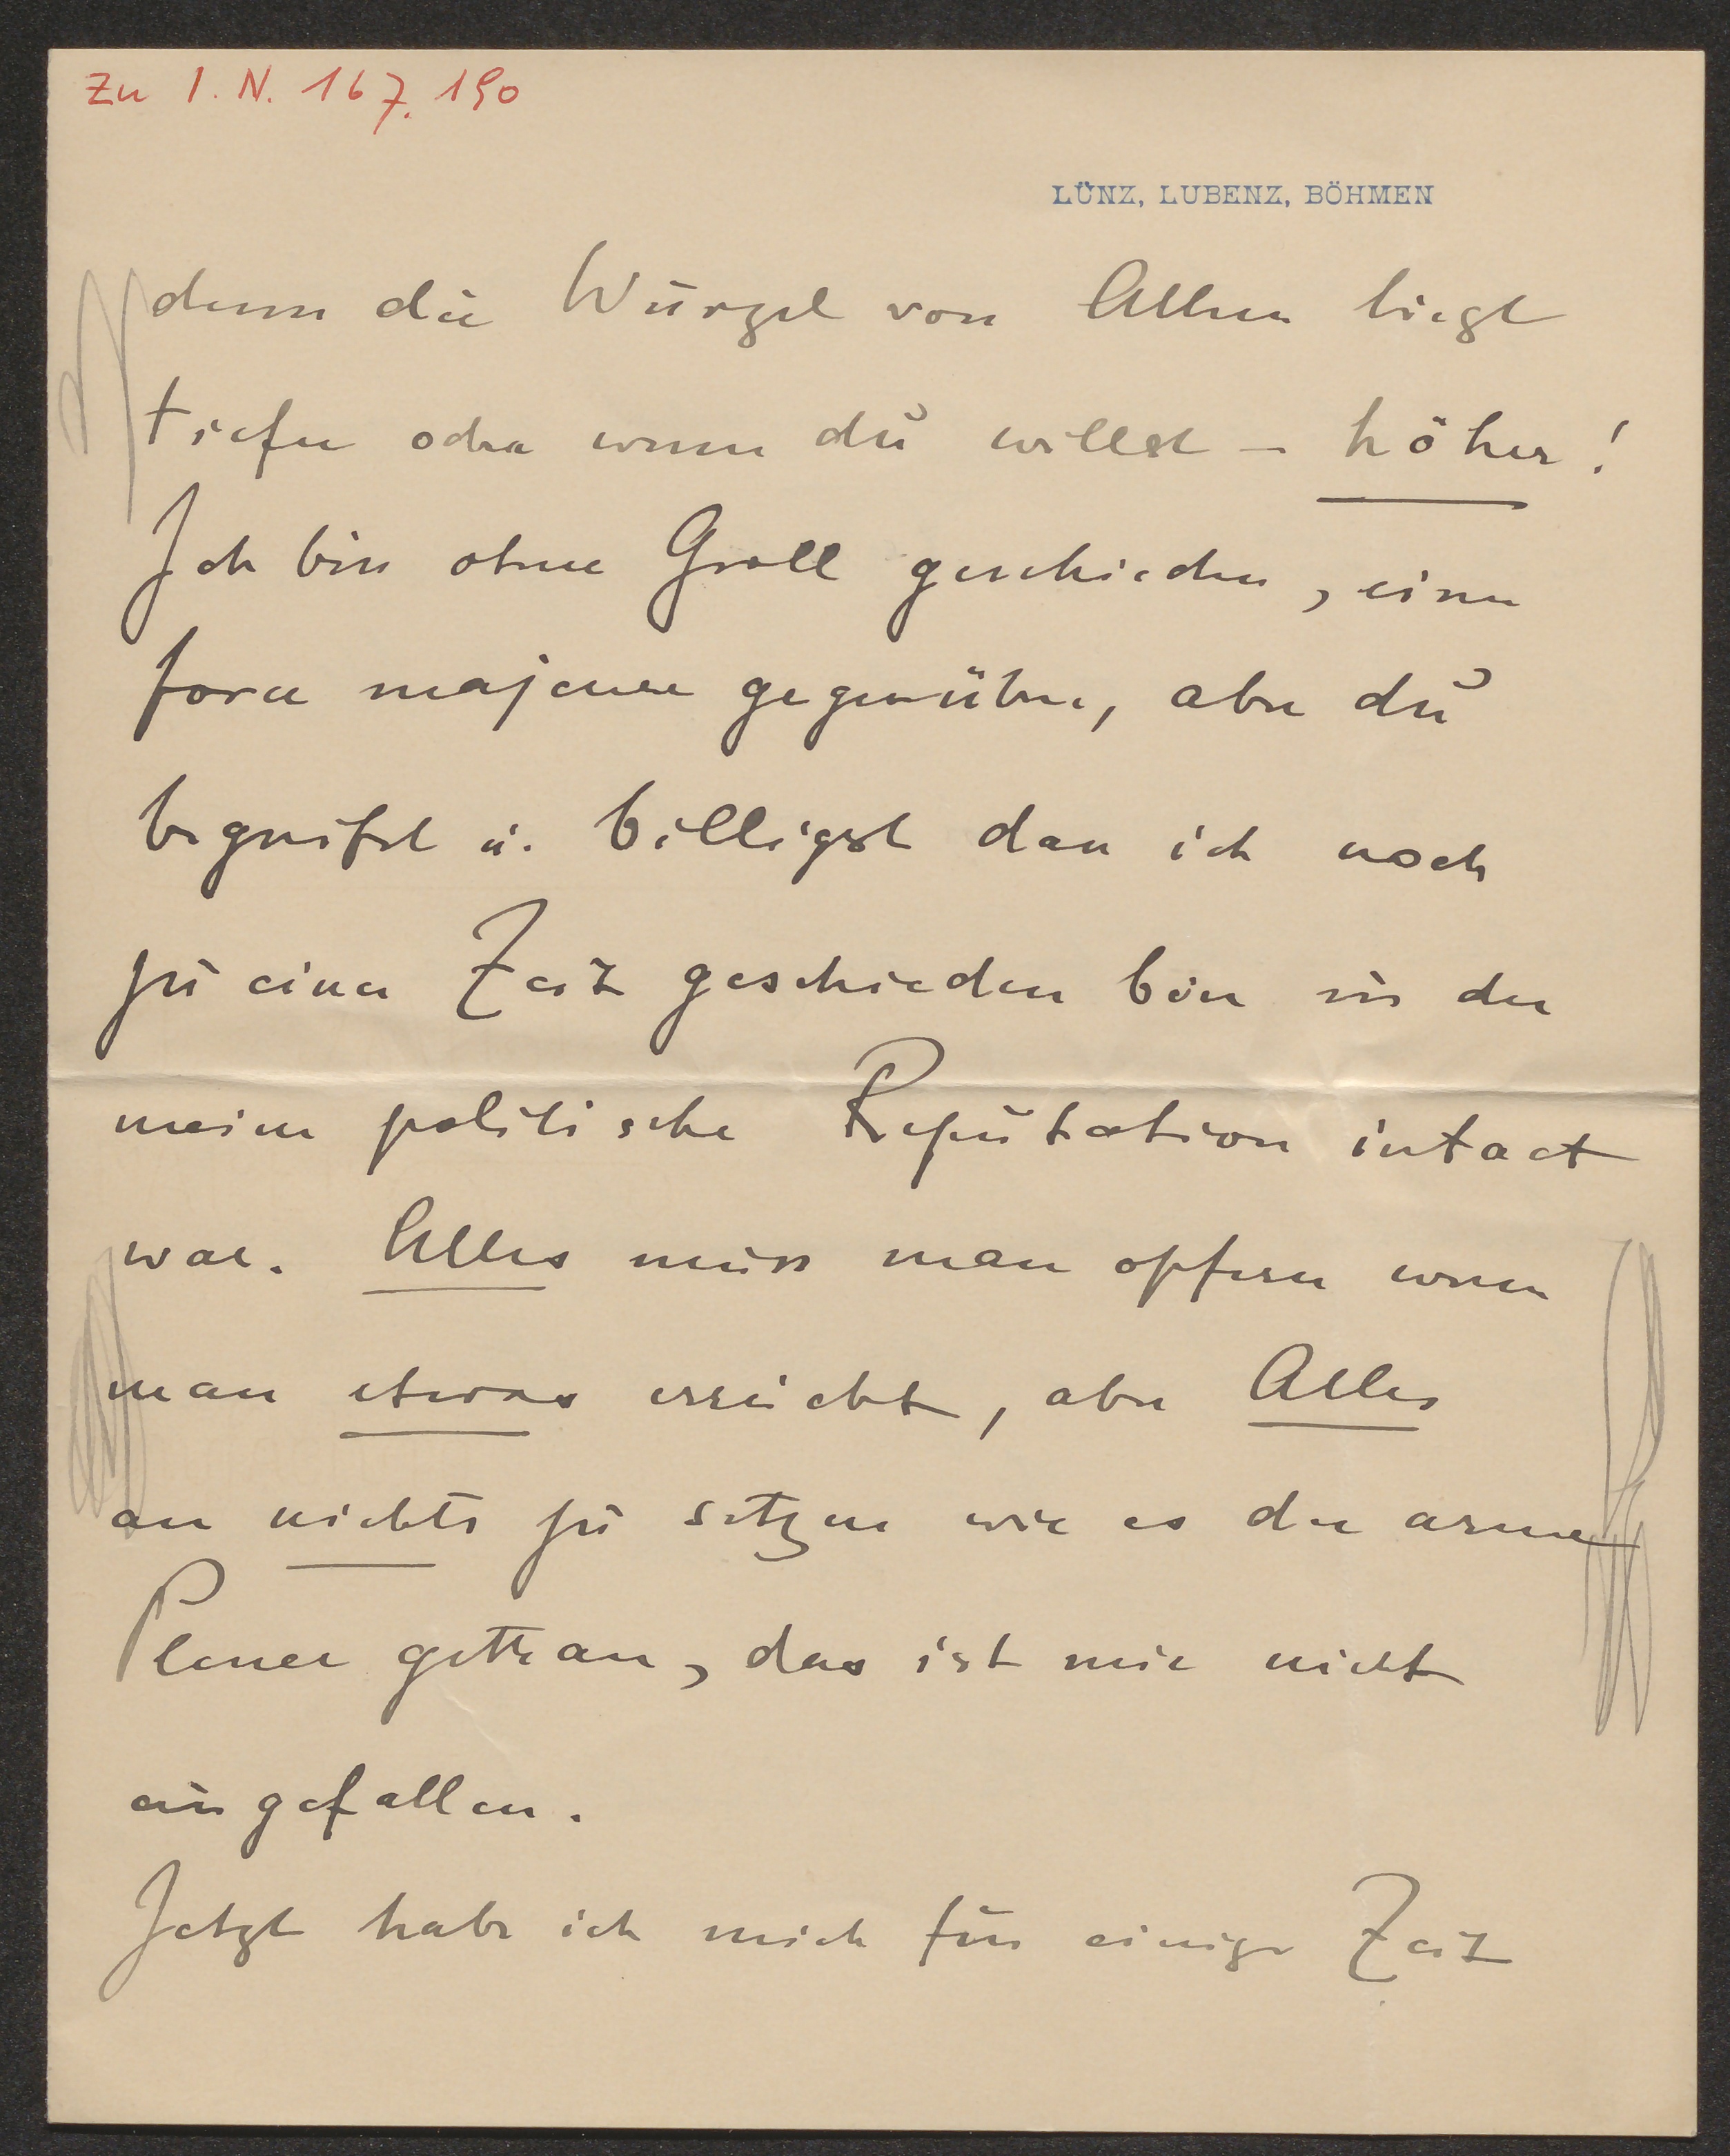 Zu I. N. 167.190
LÜNZ, LUBENZ, BÖHMEN
denn die Wurzel von Allem liegt
tiefer oder wenn du willst – höher!
Ich bin ohne Groll geschieden, einer
force majeure gegenüber, aber du
begreifst u. billigst dass ich noch
zu einer Zeit geschieden bin in der
meine politische Reputation intact
war. Alles muss man opfern wenn
man etwas erreicht, aber Alles
an nichts zu setzen wie es der arme
Plener gethan, das ist mir nicht
eingefallen.
Jetzt habe ich mich für einige Zeit